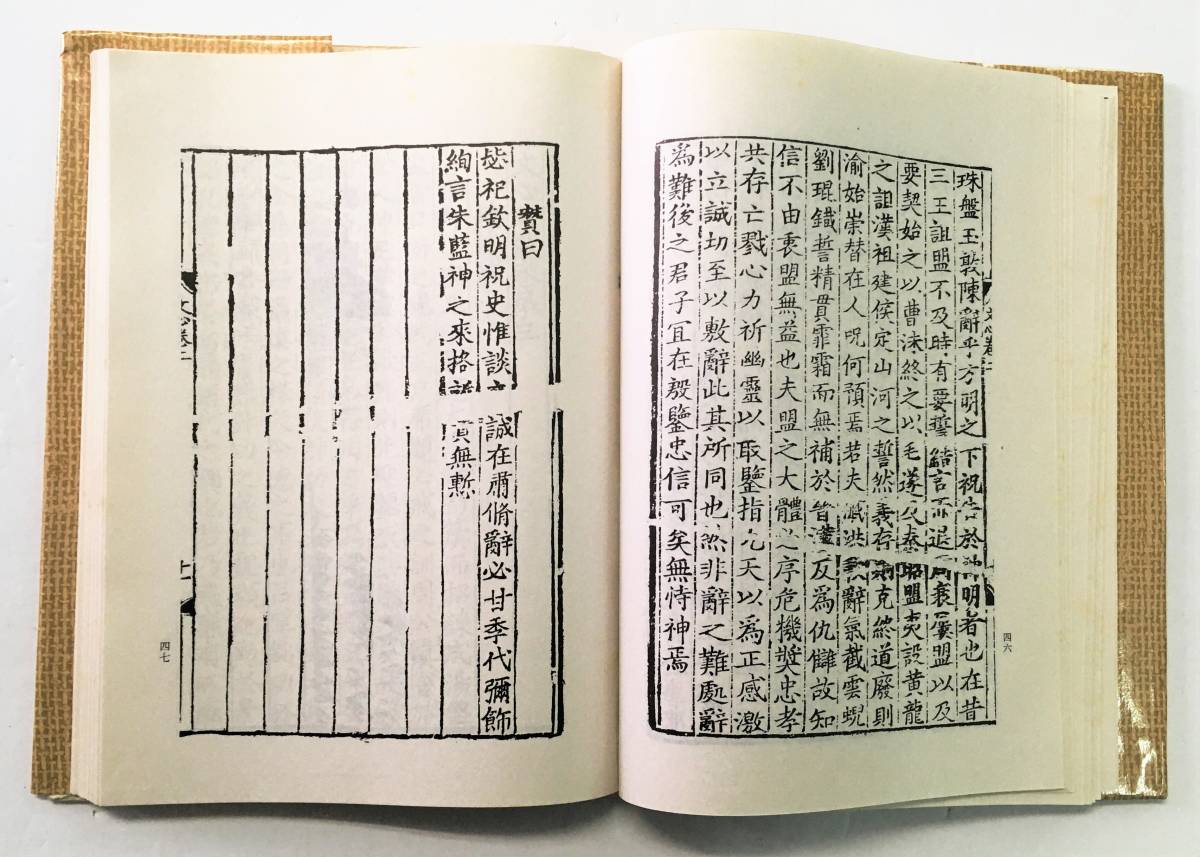 珠盤玉敦陳辭乎方明之下祝告於神明者也在昔
三王詛盟不及時有要誓結言而退周衰屢盟以及
要契始之以曹沫終之以毛遂及秦昭盟夷設黄龍
之詛漢祖建侯定山河之誓然義存則克終道廢則
渝始崇替在人呪何預焉若夫臧洪辭氣截雲蜺
劉琨鐵誓精貫霏霜而無補於晉漢反爲仇讎故知
信不由衷盟無益也夫盟之大體必序危機奬忠孝
共存亡戮心力祈幽靈以取鑒指九天以爲正感激
以立誠切至以敷辭此其所同也然非辭之難處辭
爲難後之君子宜在殷鑒忠信可矣無恃神焉
文心卷二
四六
贊曰
毖祀欽明祝史惟談誠在肅脩辭必甘季代彌飾
絢言朱藍神之來格貴無慙
文心卷二
十一
四七